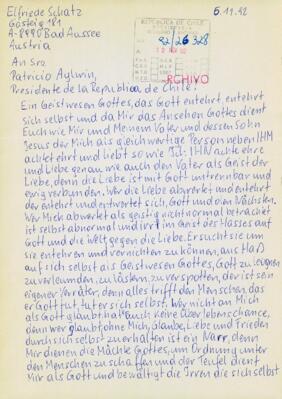 Elfriede Schatz
Gösteig 181
A-8990 Bad Aussee
Austria
5.11.92
REPUBLICA DE CHILE
92/26328
ARCHIVO
An Sro
Patricio Aylwin,
Presidente de la Republica de Chile!
Ein Geistwesen Gottes, das Gott entehrt, entehrt
sich selbst und da Mir das Ansehen Gottes dient
Euch wie Mir und Meinem Vater und dessen Sohn
Jesus der Mich als gleichwertige Person neben IHM
achtet ehrt und liebt so wie Ich IHN achte ehre
und Liebe genau wie auch den Vater als Geist der
Liebe, denn die Liebe ist mit Gott untrennbar und
ewig verbunden. Wer die Liebe abwertet und entehrt
der entehrt und entwertet sich, Gott und den Nächsten.
Wer Mich abwertet als geistig nicht normal betrachtet
ist selbst abnormal und irrt im Geist des Hasses auf
Gott und die Welt gegen die Liebe. Er sucht sie um
sie entehren und vernichten zu können, aus Haß
auf sich selbst als Geistwesen Gottes, Gott zu leugnen
zu verleumden, zu lästern, zu verspotten, der ist sein
eigener Verräter, denn alles trifft den Menschen, das
er Gott tut, tut er sich selbst. Wer nicht an Mich
als Gott glaubt, hat auch keine Überlebenschance,
denn wer glaubt, ohne Mich, Glaube, Liebe und Frieden
durch sich selbst zu erhalten ist ein Narr, denn
Mir dienen die Mächte Gottes, um Ordnung unter
den Menschen zu schaffen und der Teufel dient
Mir als Gott und bewältigt die Irren die sich selbst